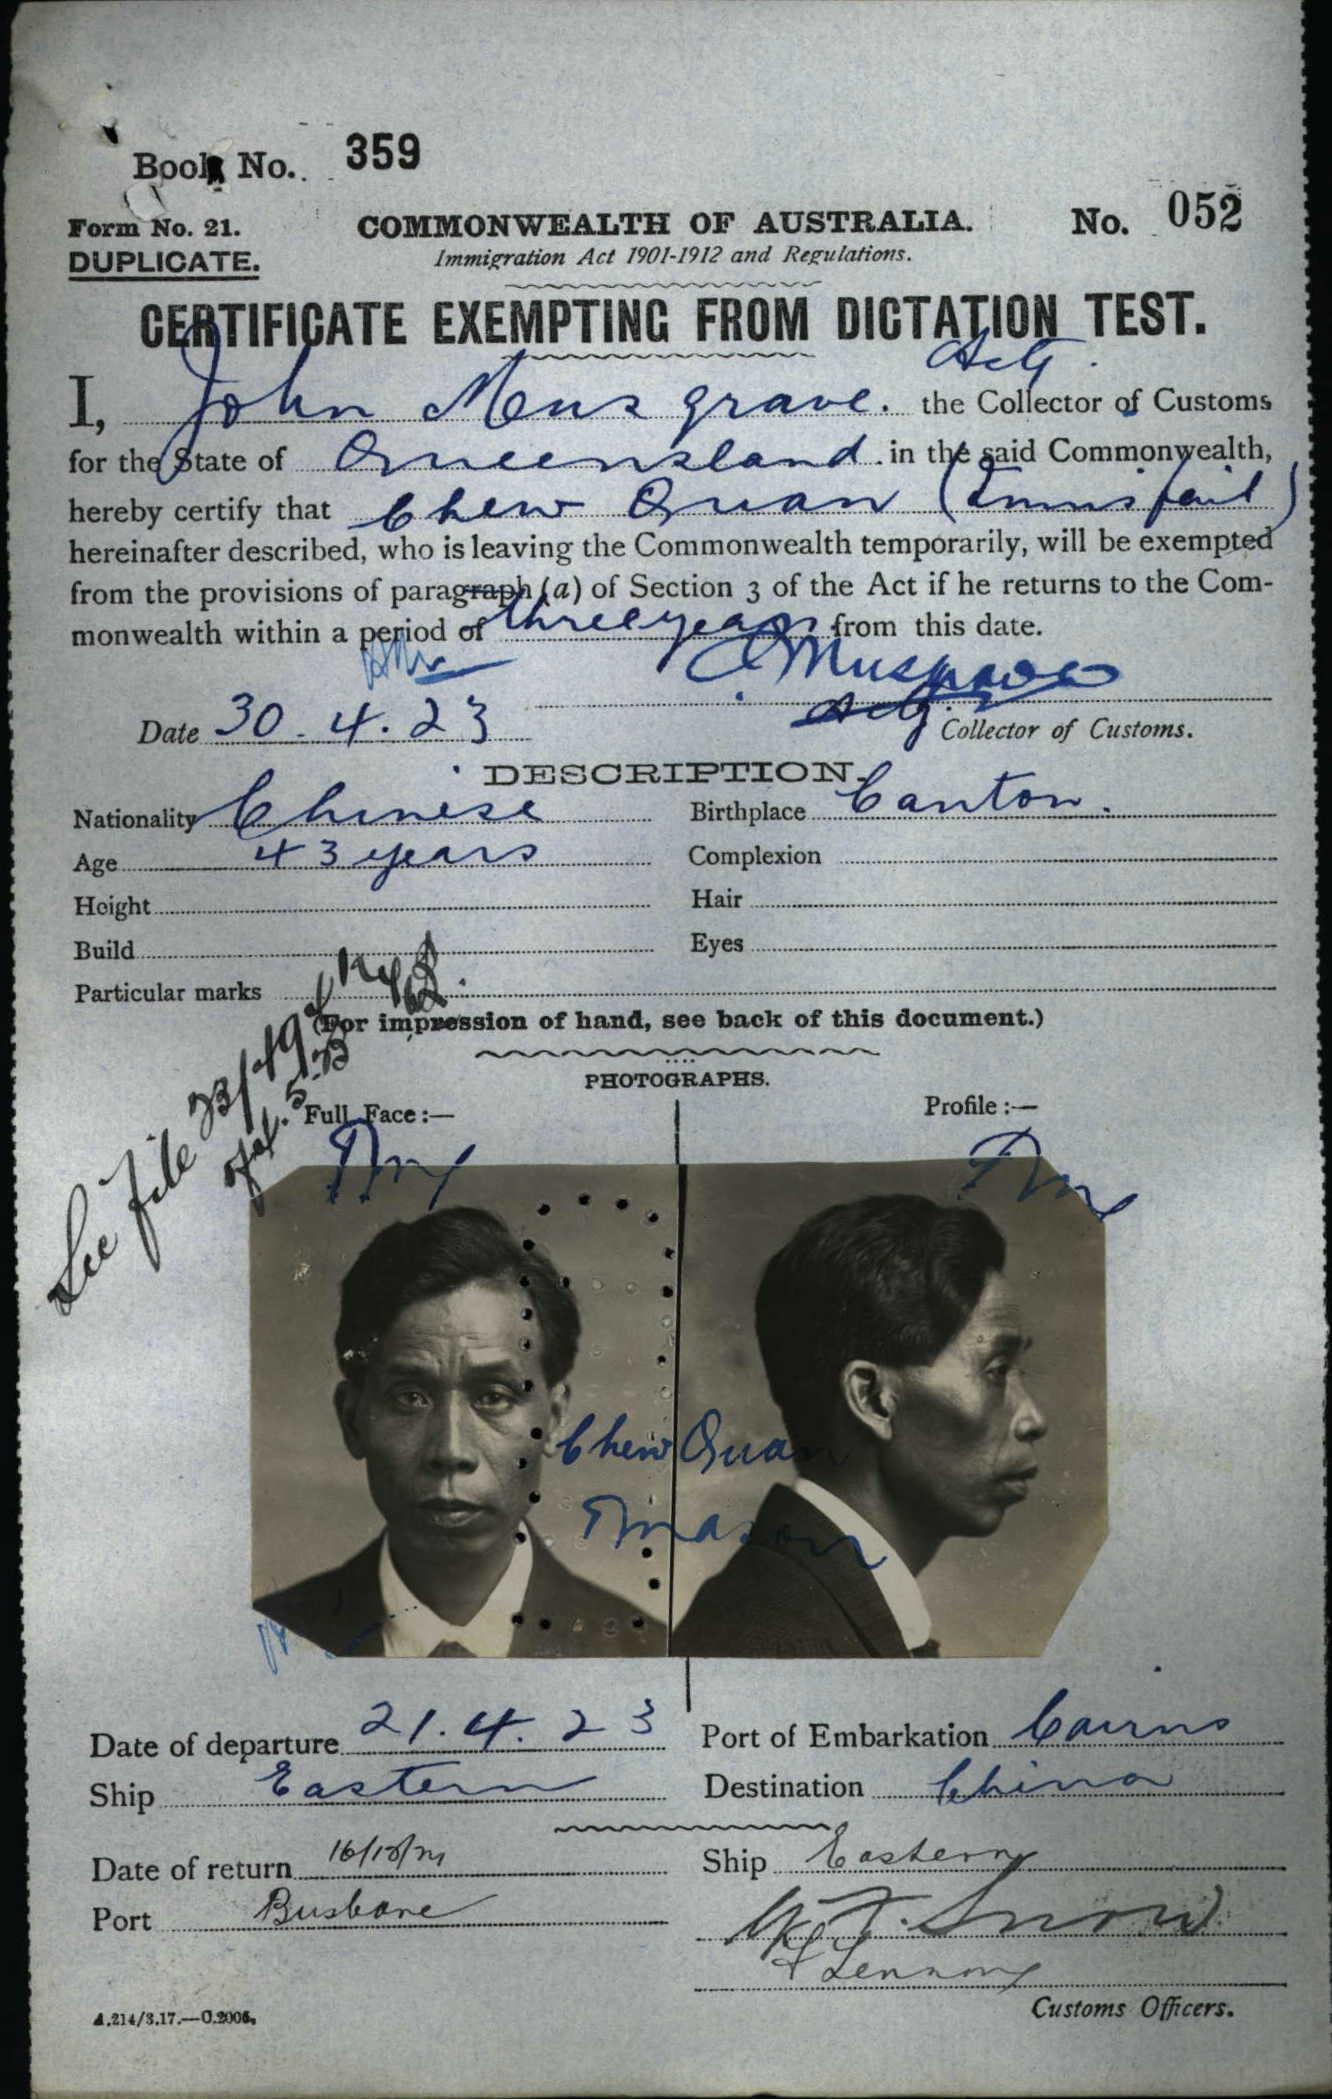 Book No. 359
Form No. 21. COMMONWEALTH OF AUSTRALIA. No. 052
DUPLICATE. Immigration Act 1901-1912 and Regulations.
CERTIFICATE EXEMPTING FROM DICTATION TEST.
Actg.
I, John Musgrave. the Collector of Customs
for the State of Queensland. in the said Commonwealth,
hereby certify that Chew Quan (Innisfail)
hereinafter described, who is leaving the Commonwealth temporarily, will be exempted
from the provisions of paragraph (a) of Section 3 of the Act if he returns to the Com-
monwealth within a period of three years from this date.
Musgrave
Date 30.4.23 Actg. Collector of Customs.
DESCRIPTION.
Nationality Chinese Birthplace Canton.
Age 43 years Complexion
Height Hair
Build Eyes
Particular marks
(For impression of hand, see back of this document.)
See File 23/
PHOTOGRAPHS.
Full Face:— Profile:—
Chew Quan
Date of departure 21.4.23 Port of Embarkation Cairns
Ship Eastern Destination China
Date of return Ship Eastern
Port Brisbane
Snow
Lennon
A.214/3.17.—C.2006. Customs Officers.